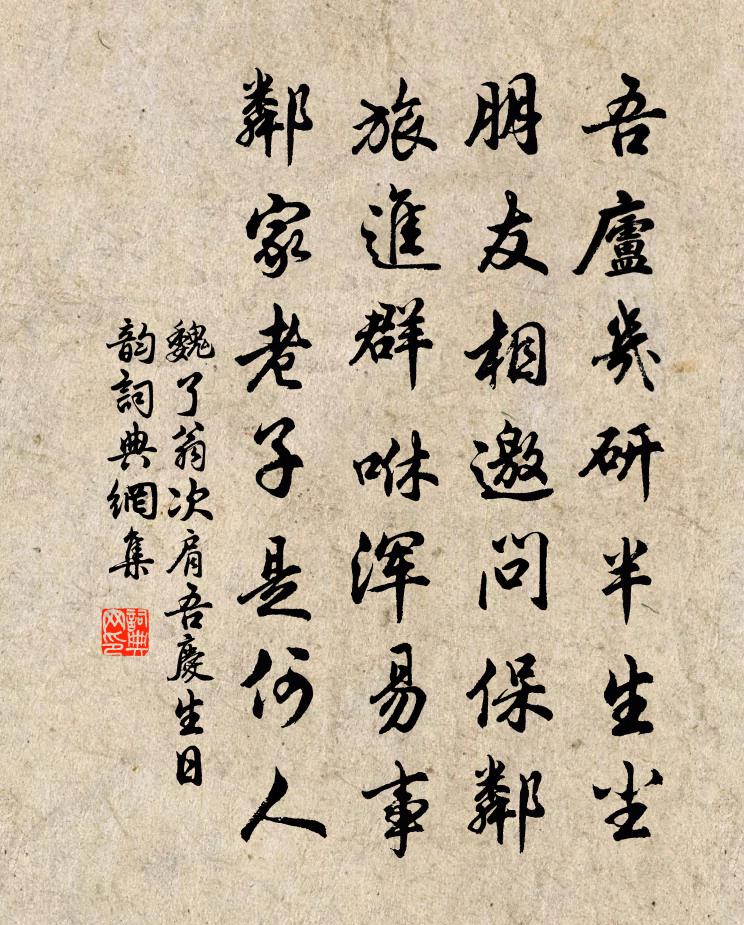 吾廬幾研半生尘
朋友相邀問保鄰
旅進群咻浑易事
鄰家老子是何人
魏了翁次肩吾慶生日
韵詞典網集
詞典
网印